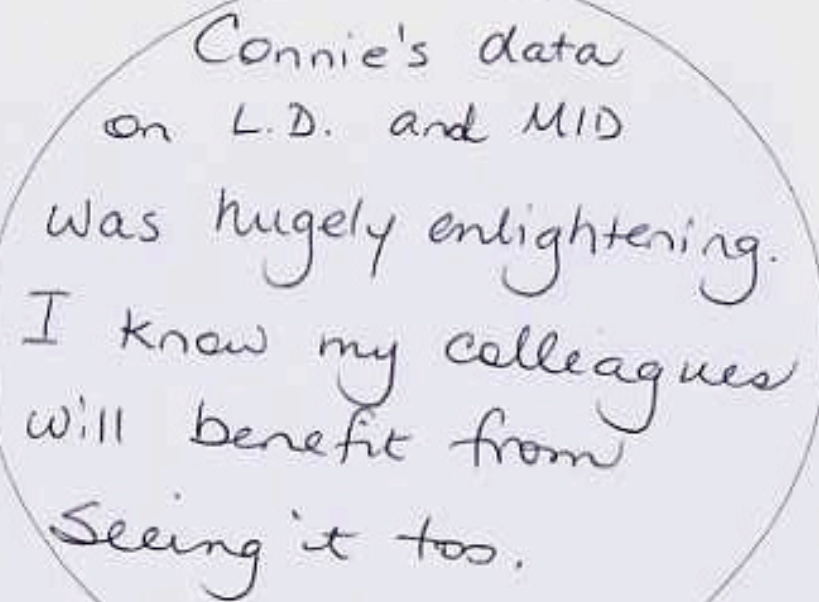 Connie's data
on L.D. and MID
was hugely enlightening.
I know my colleagues
will benefit from
seeing it too.